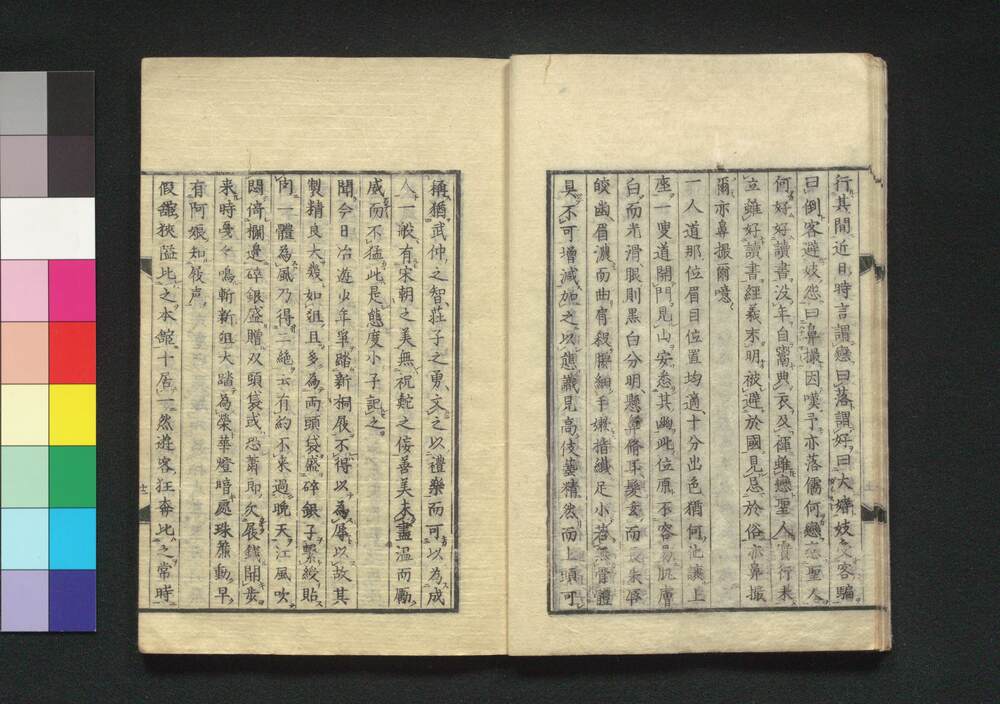 行其間近日時言謂戀曰落謂好曰大癖妓文客騙
曰倒客避妓怨曰鼻撮因嘆予亦落儒何戀戀聖人
何好好讀書没年自當與衣及褌雖戀聖人實行未
立雖好讀書經義未明被避於國見忌於俗亦鼻撮
爾亦鼻撮爾噫
一人道那位眉目位置均適十分出色猶何讓上
座一叟道開門見山安悉其幽此位原不容易肌膚
白而光滑眼則黒白分明懸鼻脩耳髮玄而長朱唇
皓齒眉濃而曲肩殺腰細手嫩指纖足小若無骨體
具不可増減加之以態識見高伎藝精然而上頭可
稱猶武仲之智莊子之勇文之以禮樂而可以為成
人一般有宋朝之美無祝鮀之佞善美未盡温而厲
威而不猛此是態度小子記之
聞今日冶遊少年爭踏新桐屐不得以為辱以故其
製精良大幾如俎且多為両頭袋盛碎銀子繋綬貼
肉一體為風乃得二絶云有約不来過晩天江風吹
悶倚欄邊碎銀盛贈双頭袋或恐蕭郎欠屐錢開歩
来時戞々鳴斬新俎大踏為榮華燈暗處珠簾動早
有阿娘知屐声
假舘狹隘比之本舘十居一然遊客狂奔比之常時